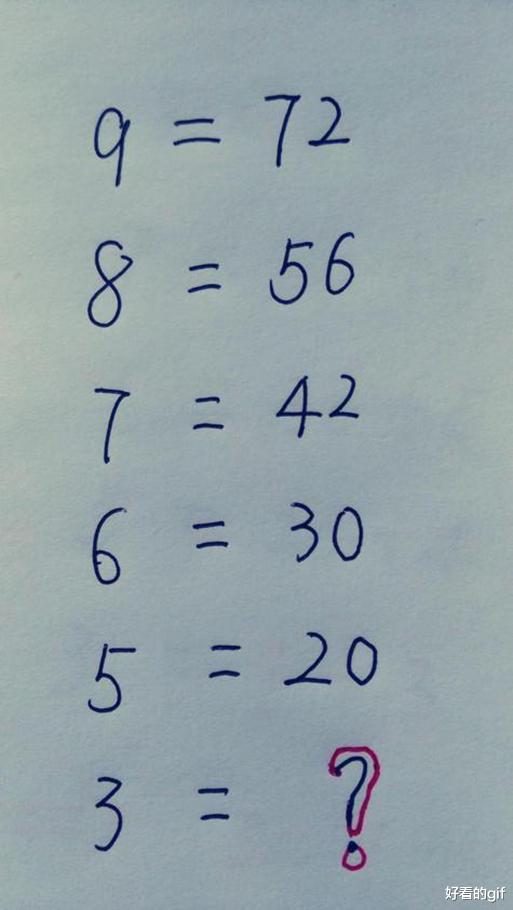 9 = 72
8 = 56
7 = 42
6 = 30
5 = 20
3 = ?
好看的gif